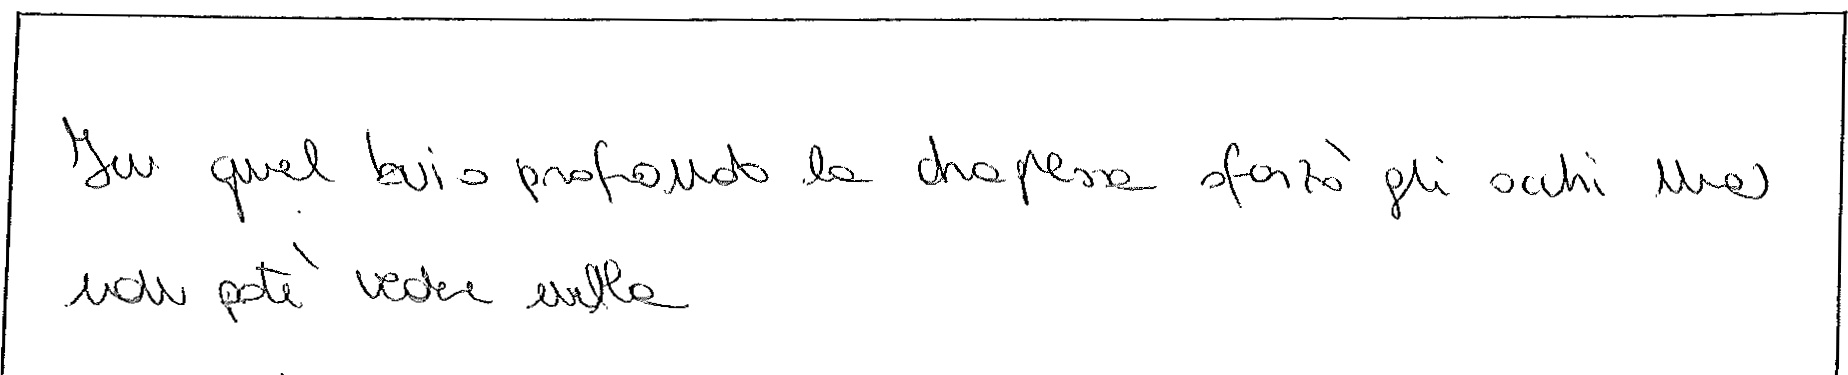 In quel buio profondo la dragessa sforzò gli occhi ma
non potè vedere nulla